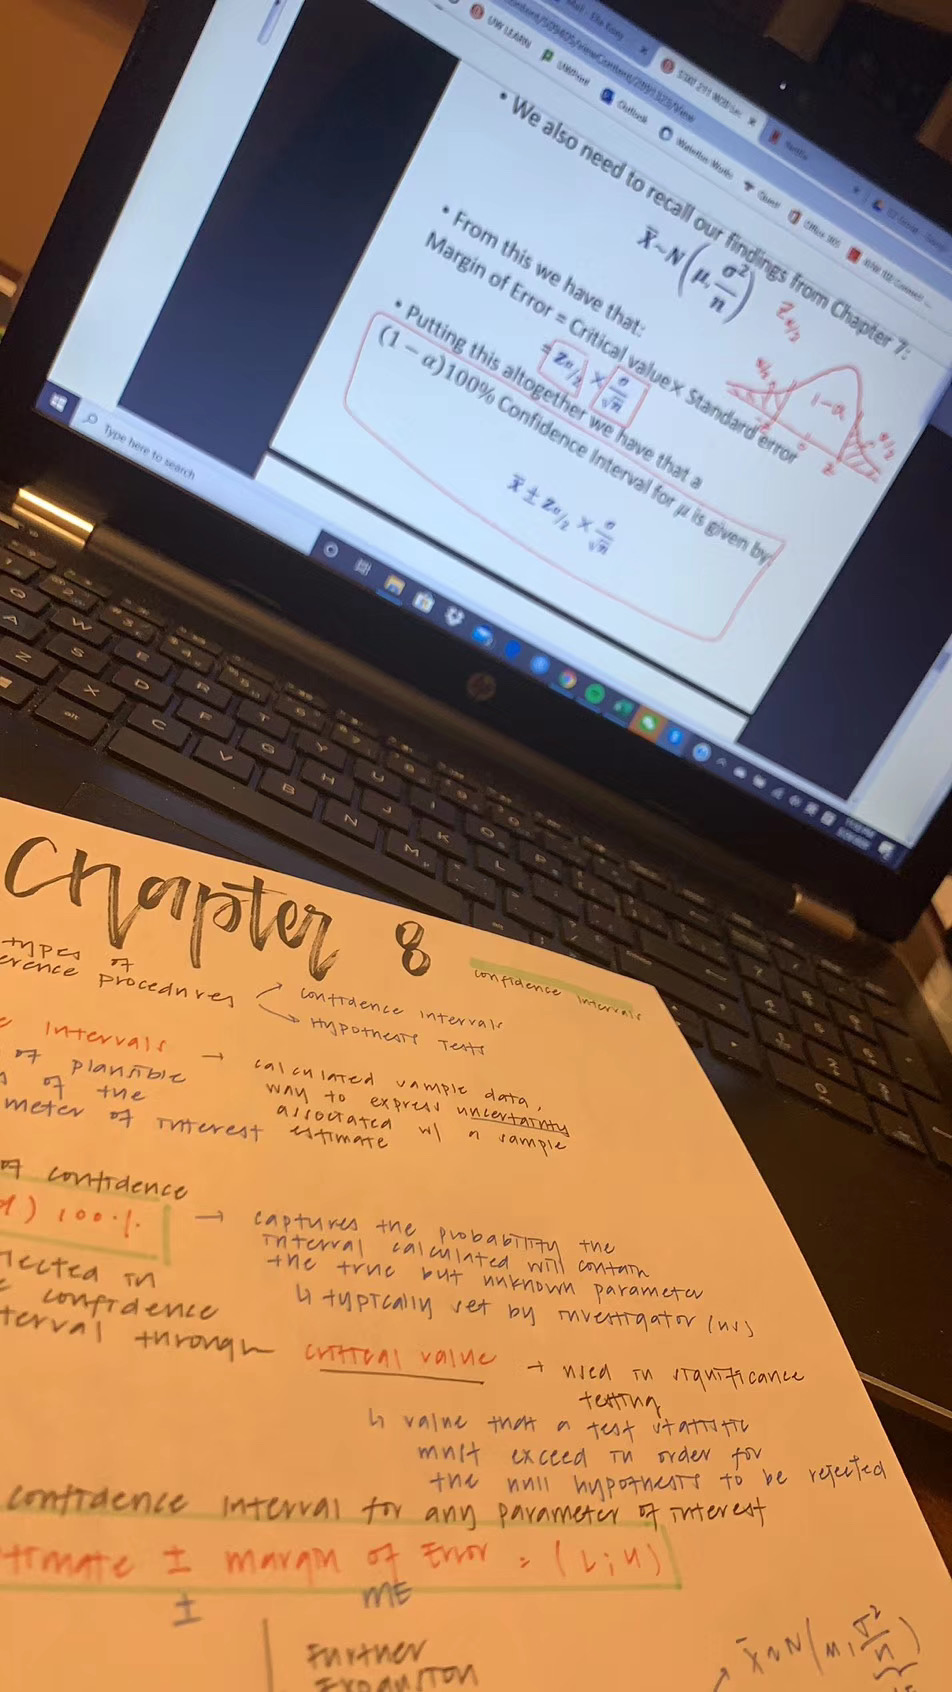 UW LEARN
Outlook
Quest
Office 365
• We also need to recall our findings from Chapter 7:
X̄~N(μ, σ²/n)
• From this we have that:
Margin of Error = Critical value x Standard error
= zα/2 × σ/√n
• Putting this altogether we have that a
(1 − α)100% Confidence Interval for μ is given by:
x̄ ± zα/2 × σ/√n
Zα/2
α/2
1-α
α/2
-z
0
z
Type here to search
hp
Chapter 8
confidence intervals
types of
erence procedures
confidence intervals
Hypothesis Tests
e intervals → calculated sample data,
of plausible way to express uncertainty
s of the associated w/ a sample
meter of interest estimate
of confidence
α) 100% → captures the probability the
interval calculated will contain
the true but unknown parameter
↳ typically set by investigator (us)
flected in
e confidence
terval through critical value → used in significance
testing
↳ value that a test statistic
must exceed in order for
the null hypothesis to be rejected
confidence interval for any parameter of interest
timate ± margin of Error = (L;U)
± ME
Further
Expansion
X̄~N(μ, σ²/n)